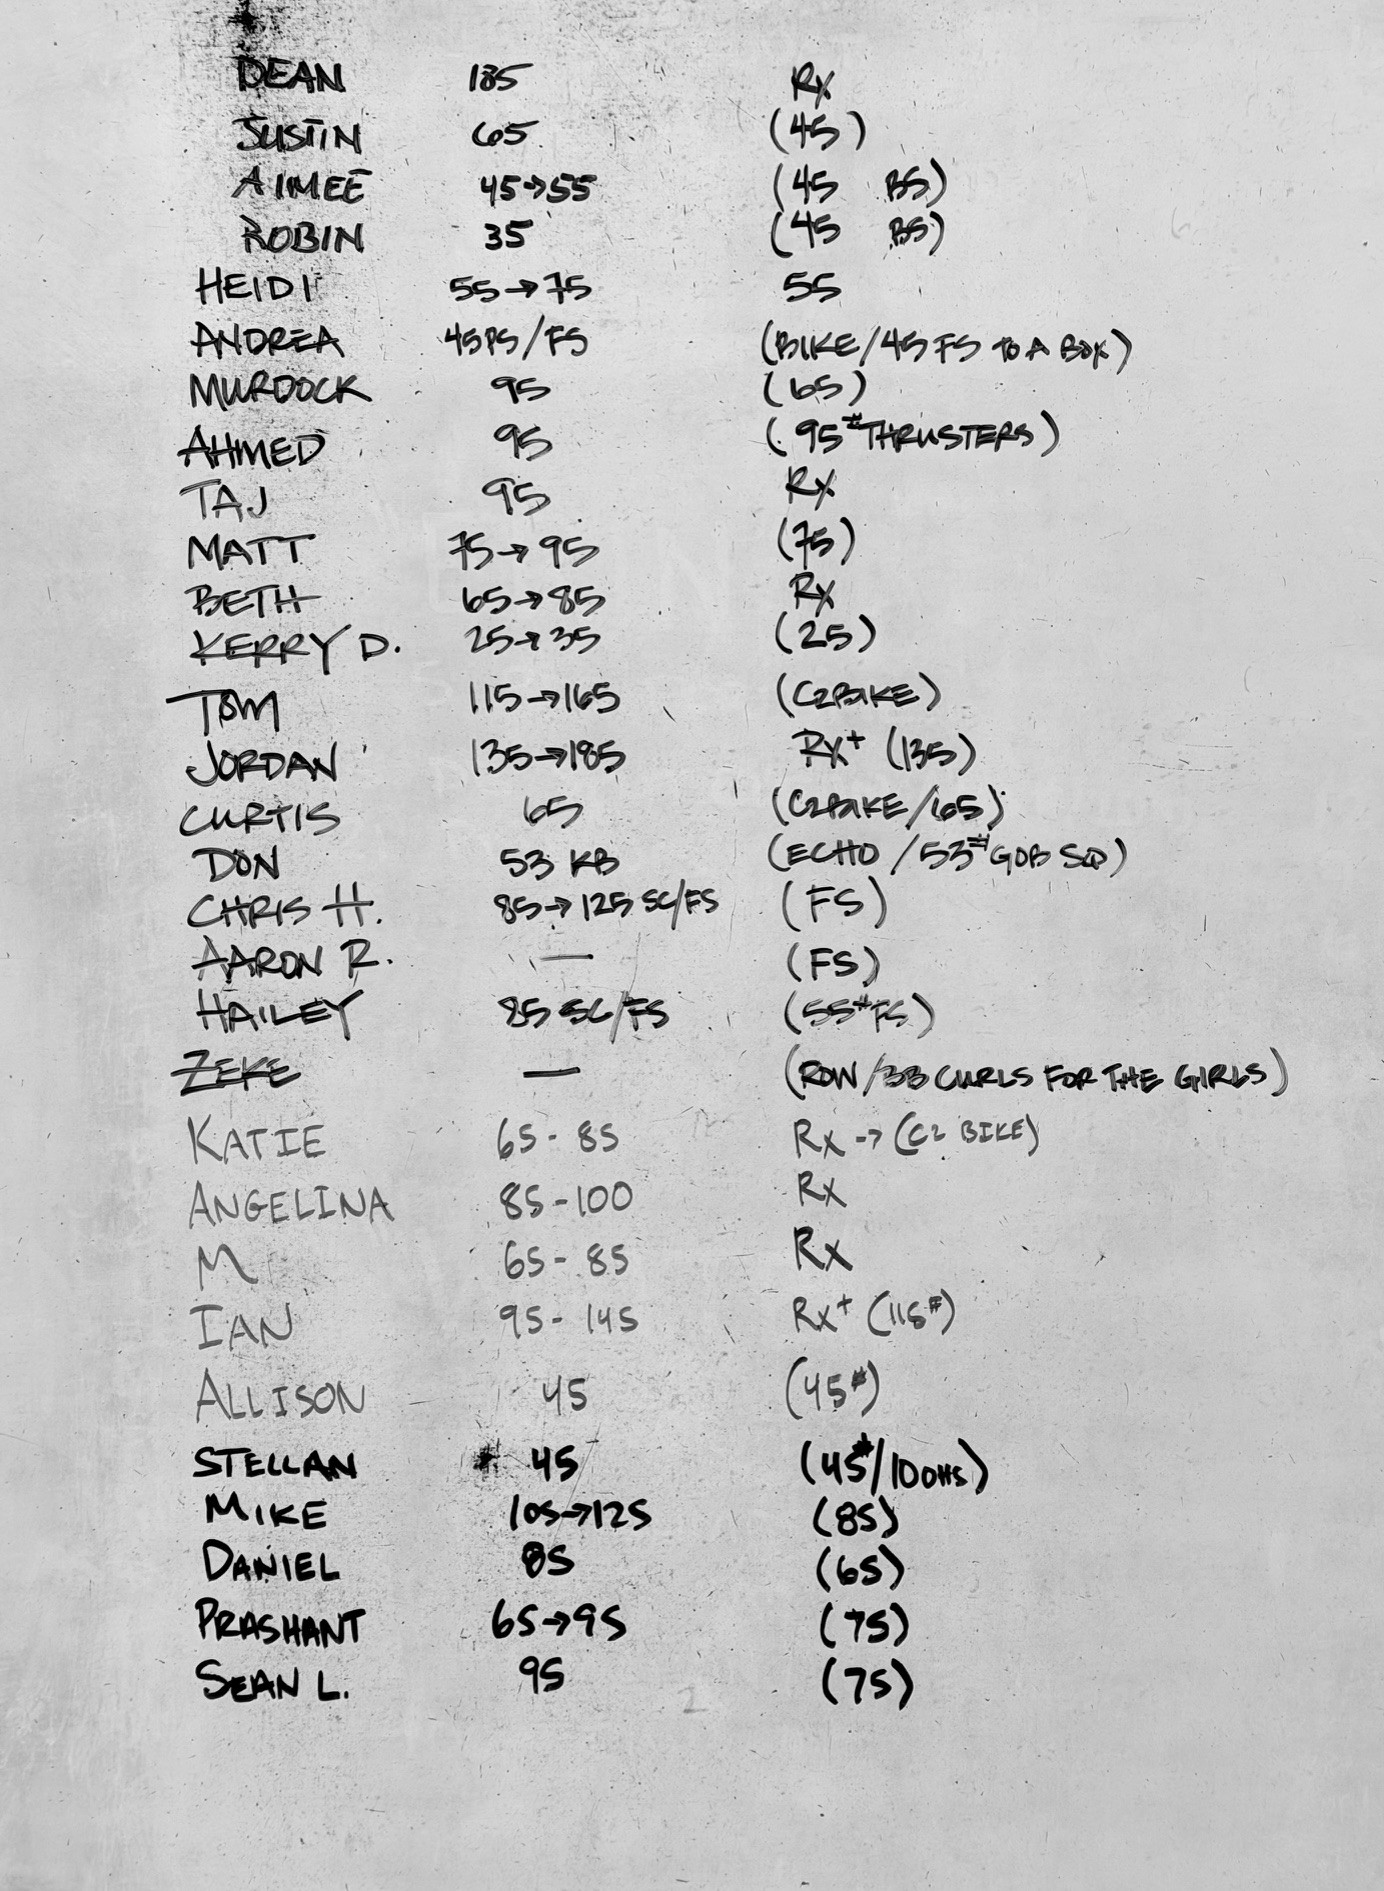 DEAN 185 Rx
JUSTIN 65 (45)
AIMEE 45→55 (45 BS)
ROBIN 35 (45 BS)
HEIDI 55→75 55
ANDREA 45PS/FS (BIKE/45 FS TO A BOX)
MURDOCK 95 (65)
AHMED 95 (95# THRUSTERS)
TAJ 95 Rx
MATT 75→95 (75)
BETH 65→85 Rx
KERRY D. 25→35 (25)
TOM 115→165 (C2BIKE)
JORDAN 135→185 RX+ (135)
CURTIS 65 (C2BIKE/65)
DON 53 KB (ECHO/53# GOB SQ)
CHRIS H. 85→125 SC/FS (FS)
AARON R. — (FS)
HAILEY 85 SC/FS (55# FS)
ZEKE — (ROW/33 CURLS FOR THE GIRLS)
KATIE 65-85 Rx → (C2 BIKE)
ANGELINA 85-100 Rx
M 65-85 Rx
IAN 95-145 Rx+ (115#)
ALLISON 45 (45#)
STELLAN 45 (45#/10 OHS)
MIKE 105→125 (85)
DANIEL 85 (65)
PRASHANT 65→95 (75)
SEAN L. 95 (75)